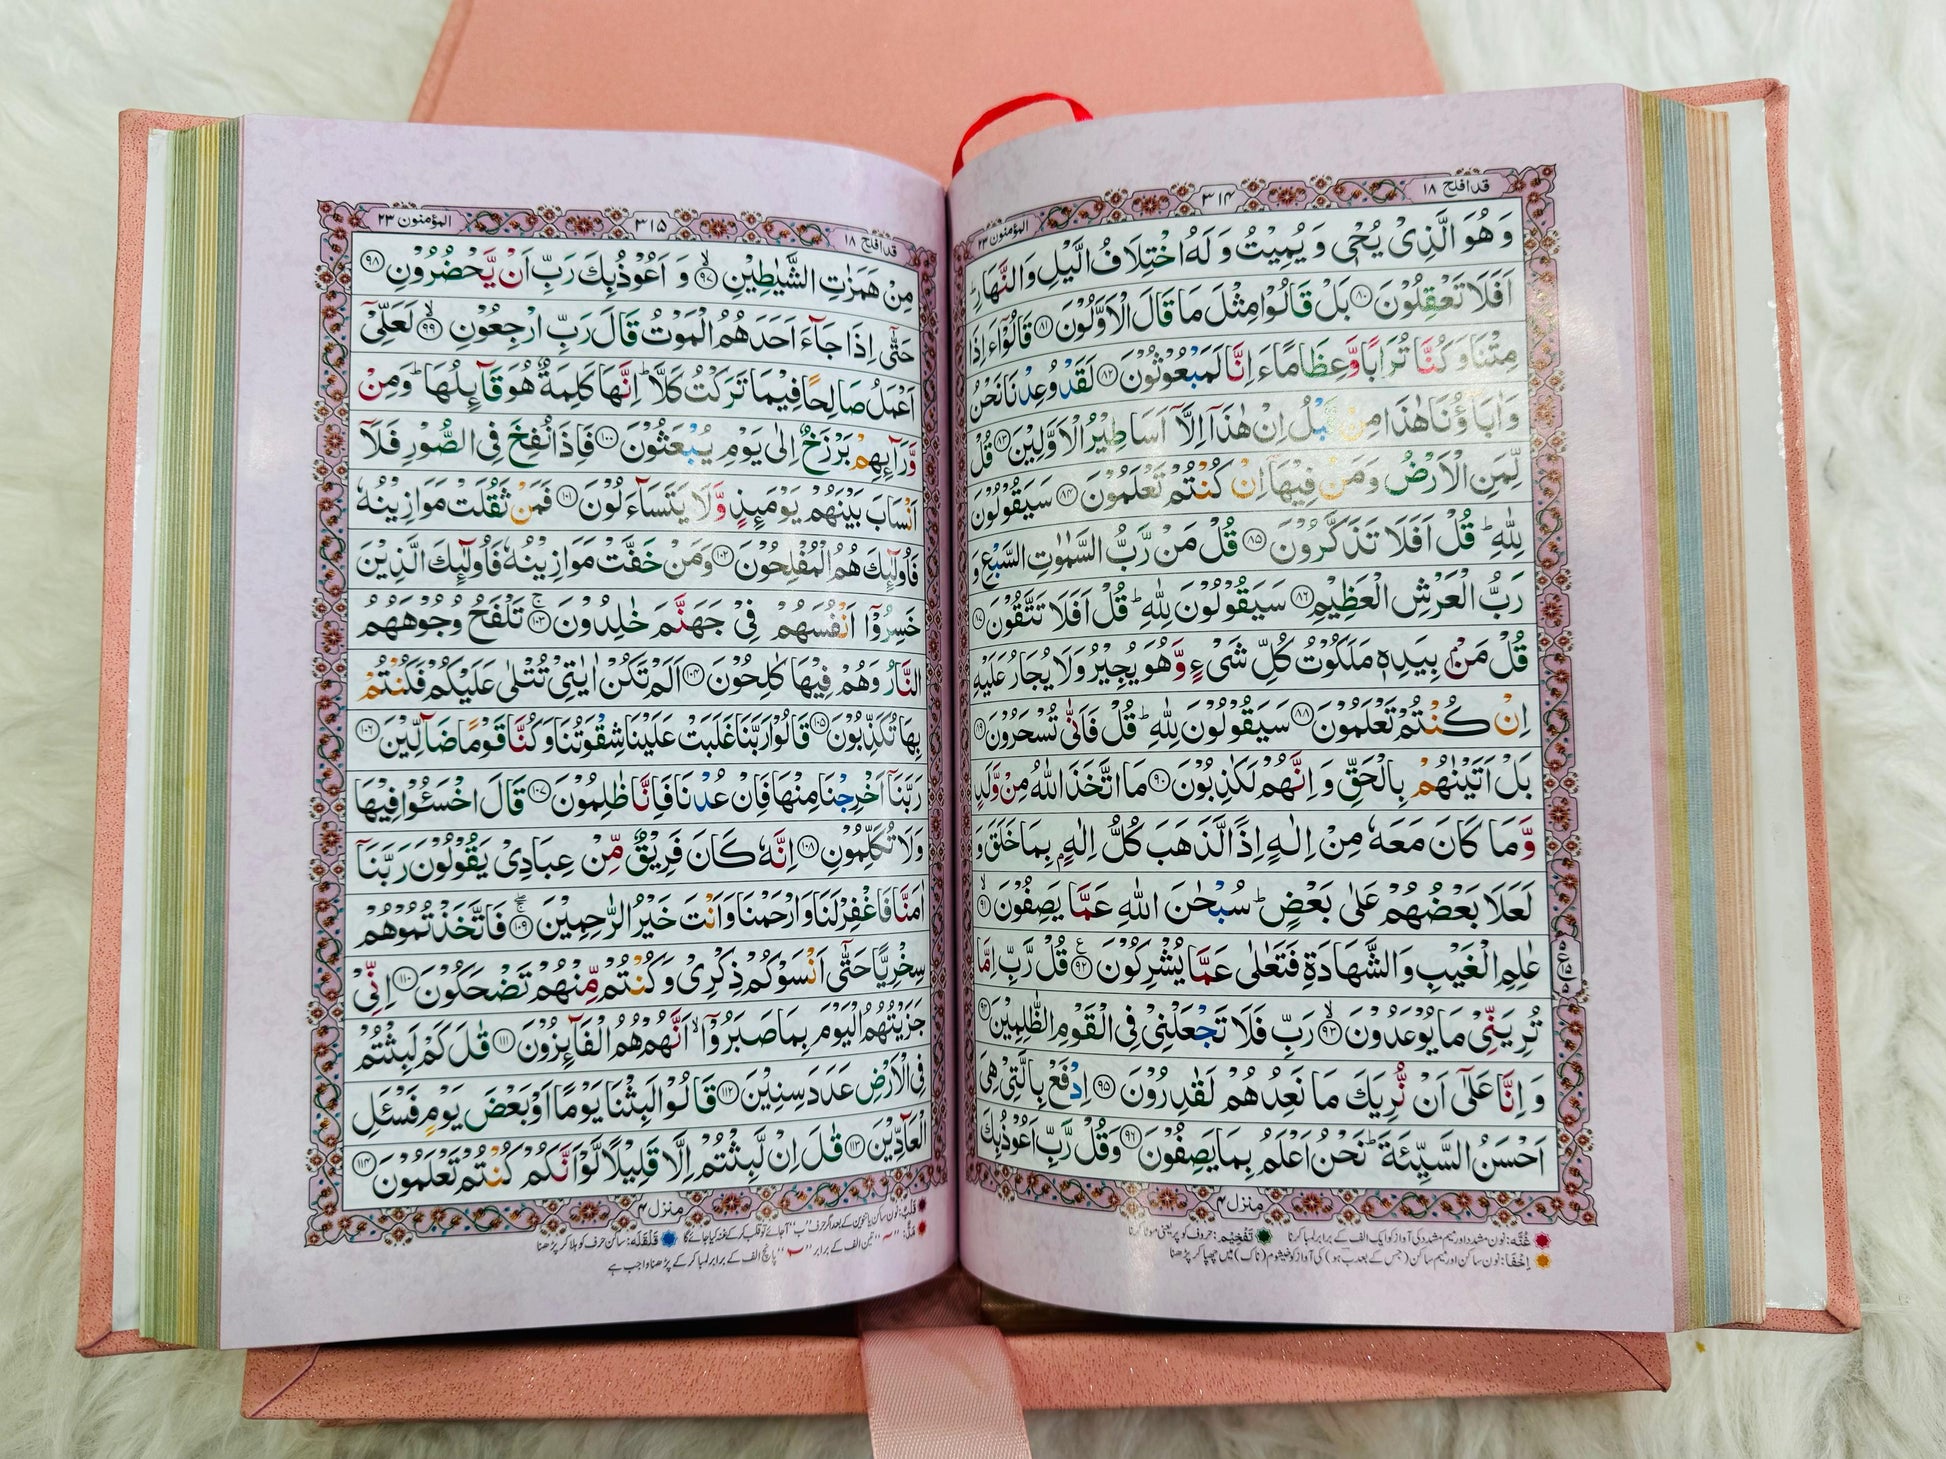 قد افلح ۱۸
۳۱۴
المؤمنون ۲۳
وَ هُوَ الَّذِیْ یُحْیٖ وَ یُمِیْتُ وَ لَهُ اخْتِلَافُ الَّیْلِ وَ النَّهَارِؕ
اَفَلَا تَعْقِلُوْنَ ۸۰ بَلْ قَالُوْا مِثْلَ مَا قَالَ الْاَوَّلُوْنَ ۸۱ قَالُوْۤا ءَاِذَا
مِتْنَا وَ كُنَّا تُرَابًا وَّ عِظَامًا ءَاِنَّا لَمَبْعُوْثُوْنَ ۸۲ لَقَدْ وُعِدْنَا نَحْنُ
وَ اٰبَآؤُنَا هٰذَا مِنْ قَبْلُ اِنْ هٰذَاۤ اِلَّاۤ اَسَاطِیْرُ الْاَوَّلِیْنَ ۸۳ قُلْ
لِّمَنِ الْاَرْضُ وَ مَنْ فِیْهَاۤ اِنْ كُنْتُمْ تَعْلَمُوْنَ ۸۴ سَیَقُوْلُوْنَ
لِلّٰهِؕ قُلْ اَفَلَا تَذَكَّرُوْنَ ۸۵ قُلْ مَنْ رَّبُّ السَّمٰوٰتِ السَّبْعِ وَ
رَبُّ الْعَرْشِ الْعَظِیْمِ ۸۶ سَیَقُوْلُوْنَ لِلّٰهِؕ قُلْ اَفَلَا تَتَّقُوْنَ ۸۷
قُلْ مَنْۢ بِیَدِهٖ مَلَكُوْتُ كُلِّ شَیْءٍ وَّ هُوَ یُجِیْرُ وَ لَا یُجَارُ عَلَیْهِ
اِنْ كُنْتُمْ تَعْلَمُوْنَ ۸۸ سَیَقُوْلُوْنَ لِلّٰهِؕ قُلْ فَاَنّٰی تُسْحَرُوْنَ ۸۹
بَلْ اَتَیْنٰهُمْ بِالْحَقِّ وَ اِنَّهُمْ لَكٰذِبُوْنَ ۹۰ مَا اتَّخَذَ اللّٰهُ مِنْ وَّلَدٍ
وَّ مَا كَانَ مَعَهٗ مِنْ اِلٰهٍ اِذًا لَّذَهَبَ كُلُّ اِلٰهٍۭ بِمَا خَلَقَ وَ
لَعَلَا بَعْضُهُمْ عَلٰی بَعْضٍؕ سُبْحٰنَ اللّٰهِ عَمَّا یَصِفُوْنَۙ ۹۱
عٰلِمِ الْغَیْبِ وَ الشَّهَادَةِ فَتَعٰلٰی عَمَّا یُشْرِكُوْنَ ۹۲ قُلْ رَّبِّ اِمَّا
تُرِیَنِّیْ مَا یُوْعَدُوْنَۙ ۹۳ رَبِّ فَلَا تَجْعَلْنِیْ فِی الْقَوْمِ الظّٰلِمِیْنَ ۹۴
وَ اِنَّا عَلٰۤی اَنْ نُّرِیَكَ مَا نَعِدُهُمْ لَقٰدِرُوْنَ ۹۵ اِدْفَعْ بِالَّتِیْ هِیَ
اَحْسَنُ السَّیِّئَةَؕ نَحْنُ اَعْلَمُ بِمَا یَصِفُوْنَ ۹۶ وَ قُلْ رَّبِّ اَعُوْذُ بِكَ
منزل ۴
غُنَّه: نون مشدد اور میم مشدد کی آواز کو ایک الف کے برابر لمبا کرنا تَفْخِیْم: حروف کو پُر یعنی موٹا کرنا
اِخْفَا: نون ساکن اور میم ساکن (جس کے بعد ب ہو) کی آواز کو خیشوم (ناک) میں چھپا کر پڑھنا
قد افلح ۱۸
۳۱۵
المؤمنون ۲۳
مِنْ هَمَزٰتِ الشَّیٰطِیْنِۙ ۹۷ وَ اَعُوْذُ بِكَ رَبِّ اَنْ یَّحْضُرُوْنِ ۹۸
حَتّٰۤی اِذَا جَآءَ اَحَدَهُمُ الْمَوْتُ قَالَ رَبِّ ارْجِعُوْنِۙ ۹۹ لَعَلِّیْۤ
اَعْمَلُ صَالِحًا فِیْمَا تَرَكْتُ كَلَّاؕ اِنَّهَا كَلِمَةٌ هُوَ قَآىِٕلُهَاؕ وَ مِنْ
وَّرَآىِٕهِمْ بَرْزَخٌ اِلٰی یَوْمِ یُبْعَثُوْنَ ۱۰۰ فَاِذَا نُفِخَ فِی الصُّوْرِ فَلَاۤ
اَنْسَابَ بَیْنَهُمْ یَوْمَىِٕذٍ وَّ لَا یَتَسَآءَلُوْنَ ۱۰۱ فَمَنْ ثَقُلَتْ مَوَازِیْنُهٗ
فَاُولٰٓىِٕكَ هُمُ الْمُفْلِحُوْنَ ۱۰۲ وَ مَنْ خَفَّتْ مَوَازِیْنُهٗ فَاُولٰٓىِٕكَ الَّذِیْنَ
خَسِرُوْۤا اَنْفُسَهُمْ فِیْ جَهَنَّمَ خٰلِدُوْنَۚ ۱۰۳ تَلْفَحُ وُجُوْهَهُمُ
النَّارُ وَ هُمْ فِیْهَا كٰلِحُوْنَ ۱۰۴ اَلَمْ تَكُنْ اٰیٰتِیْ تُتْلٰی عَلَیْكُمْ فَكُنْتُمْ
بِهَا تُكَذِّبُوْنَ ۱۰۵ قَالُوْا رَبَّنَا غَلَبَتْ عَلَیْنَا شِقْوَتُنَا وَ كُنَّا قَوْمًا ضَآلِّیْنَ ۱۰۶
رَبَّنَاۤ اَخْرِجْنَا مِنْهَا فَاِنْ عُدْنَا فَاِنَّا ظٰلِمُوْنَ ۱۰۷ قَالَ اخْسَـُٔوْا فِیْهَا
وَ لَا تُكَلِّمُوْنِ ۱۰۸ اِنَّهٗ كَانَ فَرِیْقٌ مِّنْ عِبَادِیْ یَقُوْلُوْنَ رَبَّنَاۤ
اٰمَنَّا فَاغْفِرْ لَنَا وَ ارْحَمْنَا وَ اَنْتَ خَیْرُ الرّٰحِمِیْنَ ۱۰۹ فَاتَّخَذْتُمُوْهُمْ
سِخْرِیًّا حَتّٰۤی اَنْسَوْكُمْ ذِكْرِیْ وَ كُنْتُمْ مِّنْهُمْ تَضْحَكُوْنَ ۱۱۰ اِنِّیْ
جَزَیْتُهُمُ الْیَوْمَ بِمَا صَبَرُوْۤاۙ اَنَّهُمْ هُمُ الْفَآىِٕزُوْنَ ۱۱۱ قٰلَ كَمْ لَبِثْتُمْ
فِی الْاَرْضِ عَدَدَ سِنِیْنَ ۱۱۲ قَالُوْا لَبِثْنَا یَوْمًا اَوْ بَعْضَ یَوْمٍ فَسْـَٔلِ
الْعَآدِّیْنَ ۱۱۳ قٰلَ اِنْ لَّبِثْتُمْ اِلَّا قَلِیْلًا لَّوْ اَنَّكُمْ كُنْتُمْ تَعْلَمُوْنَ ۱۱۴
منزل ۴
قلب: نون ساکن یا تنوین کے بعد اگر حرف "ب" آجائے تو قلب کر کے غنہ کیا جائے گا قَلْقَلَه: ساکن حرف کو ہلا کر پڑھنا
مَدّ: تین الف کے برابر پانچ الف کے برابر لمبا کر کے پڑھنا واجب ہے